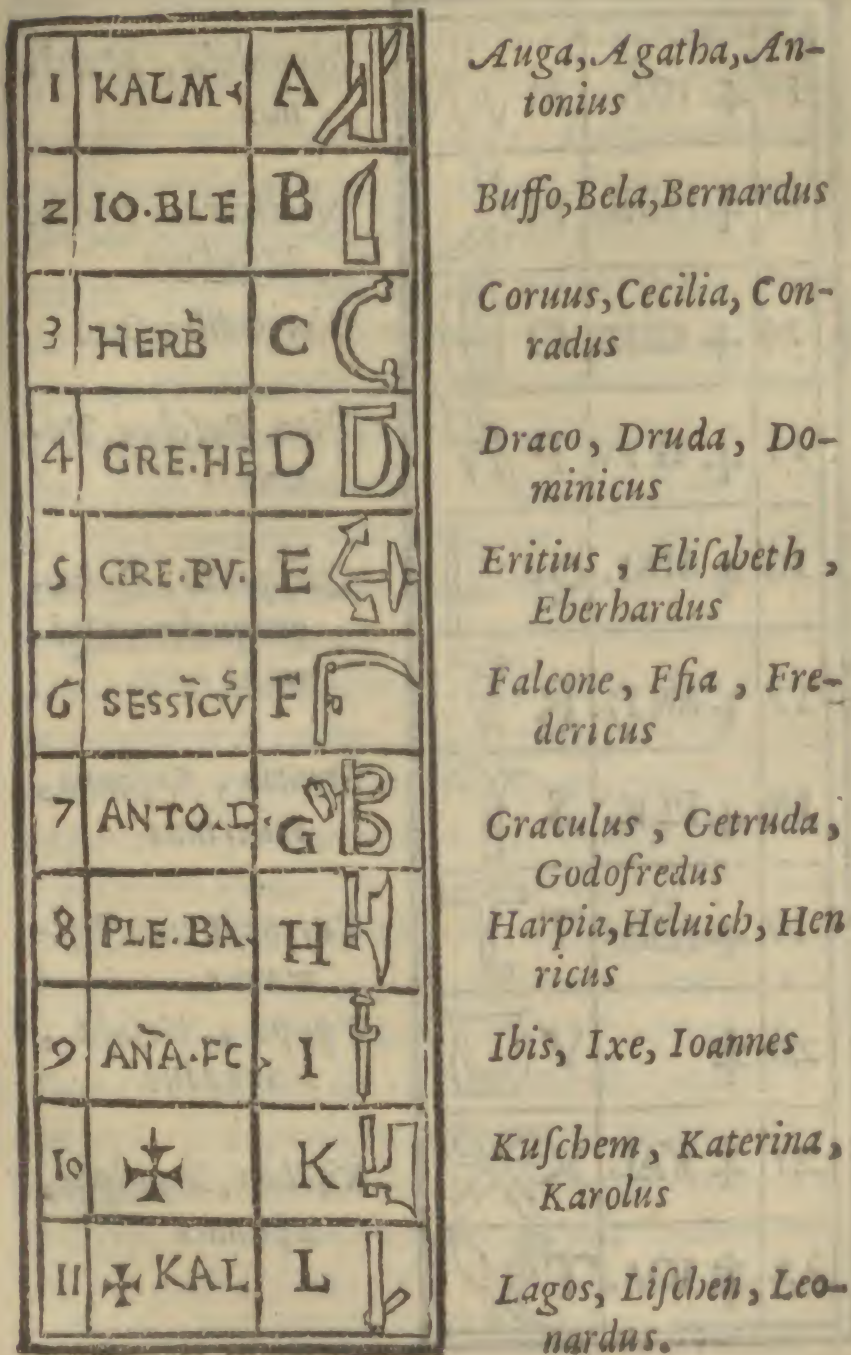 1 KALM A
Auga, Agatha, An-
tonius
2 IO.BLE B
Buffo, Bela, Bernardus
3 HERB̃ C
Coruus, Cecilia, Con-
radus
4 GRE.HE D
Draco, Druda, Do-
minicus
5 GRE.PV. E
Eritius, Eliſabeth,
Eberhardus
6 SESSIC̃V̊ F
Falcone, Fſia, Fre-
dericus
7 ANTO.D. G
Graculus, Getruda,
Godofredus
8 PLE.BA. H
Harpia, Heluich, Hen
ricus
9 AÑA.FC I
Ibis, Ixe, Ioannes
10 ✠ K
Kuſchem, Katerina,
Karolus
11 ✠ KAL L
Lagos, Liſchen, Leo-
nardus.